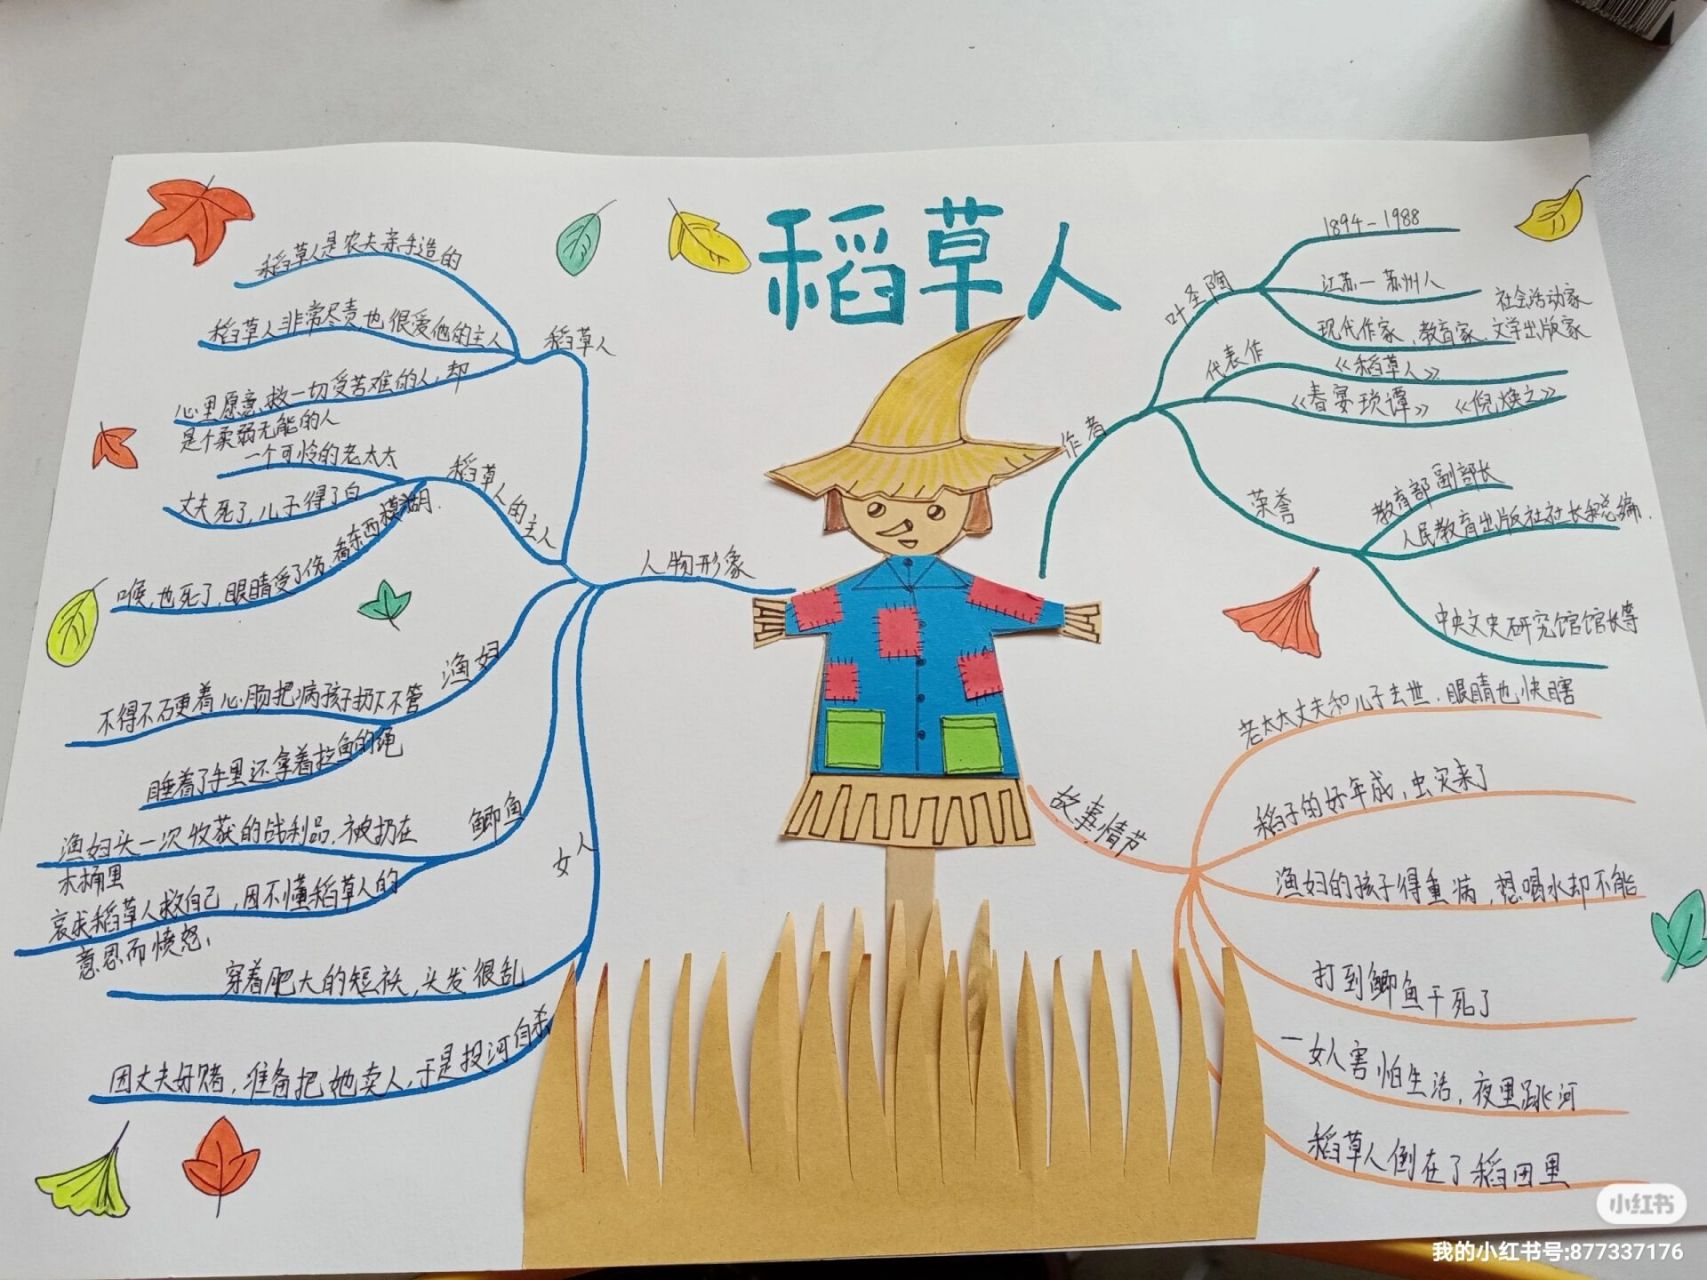 稻草人
稻草人是农夫亲手造的
稻草人非常尽责也很爱他的主人
心里愿意救一切受苦难的人,却
是个柔弱无能的人
稻草人
一个可怜的老太太
丈夫死了,儿子得了白
喉,也死了,眼睛受了伤,看东西模湖.
稻草人的主人
人物形象
渔妇
不得不硬着心肠把病孩子扔下不管
睡着了手里还拿着拉鱼的绳
鲫鱼
渔妇头一次收获的战利品,被扔在
木桶里
哀求稻草人救自己,因不懂稻草人的
意思而愤怒,
女人
穿着肥大的短袄,头发很乱
因丈夫好赌,准备把她卖人,于是投河自杀
作者
叶圣陶
1894-1988
江苏—苏州人
社会活动家
现代作家,教育家,文学出版家
代表作
《稻草人》
《春宴琐谭》 《倪焕之》
荣誉
教育部副部长
人民教育出版社社长和总编.
中央文史研究馆馆长等
故事情节
老太太丈夫和儿子去世,眼睛也快瞎
稻子的好年成,虫灾来了
渔妇的孩子得重病,想喝水却不能
打到鲫鱼干死了
一女人害怕生活,夜里跳河
稻草人倒在了稻田里
小红书
我的小红书号:877337176